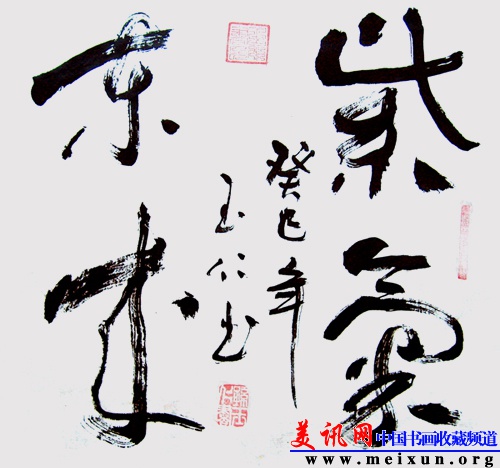 紫氣
东来
癸巳年
玉仁书
美讯网
中国书画收藏频道
www.meixun.org